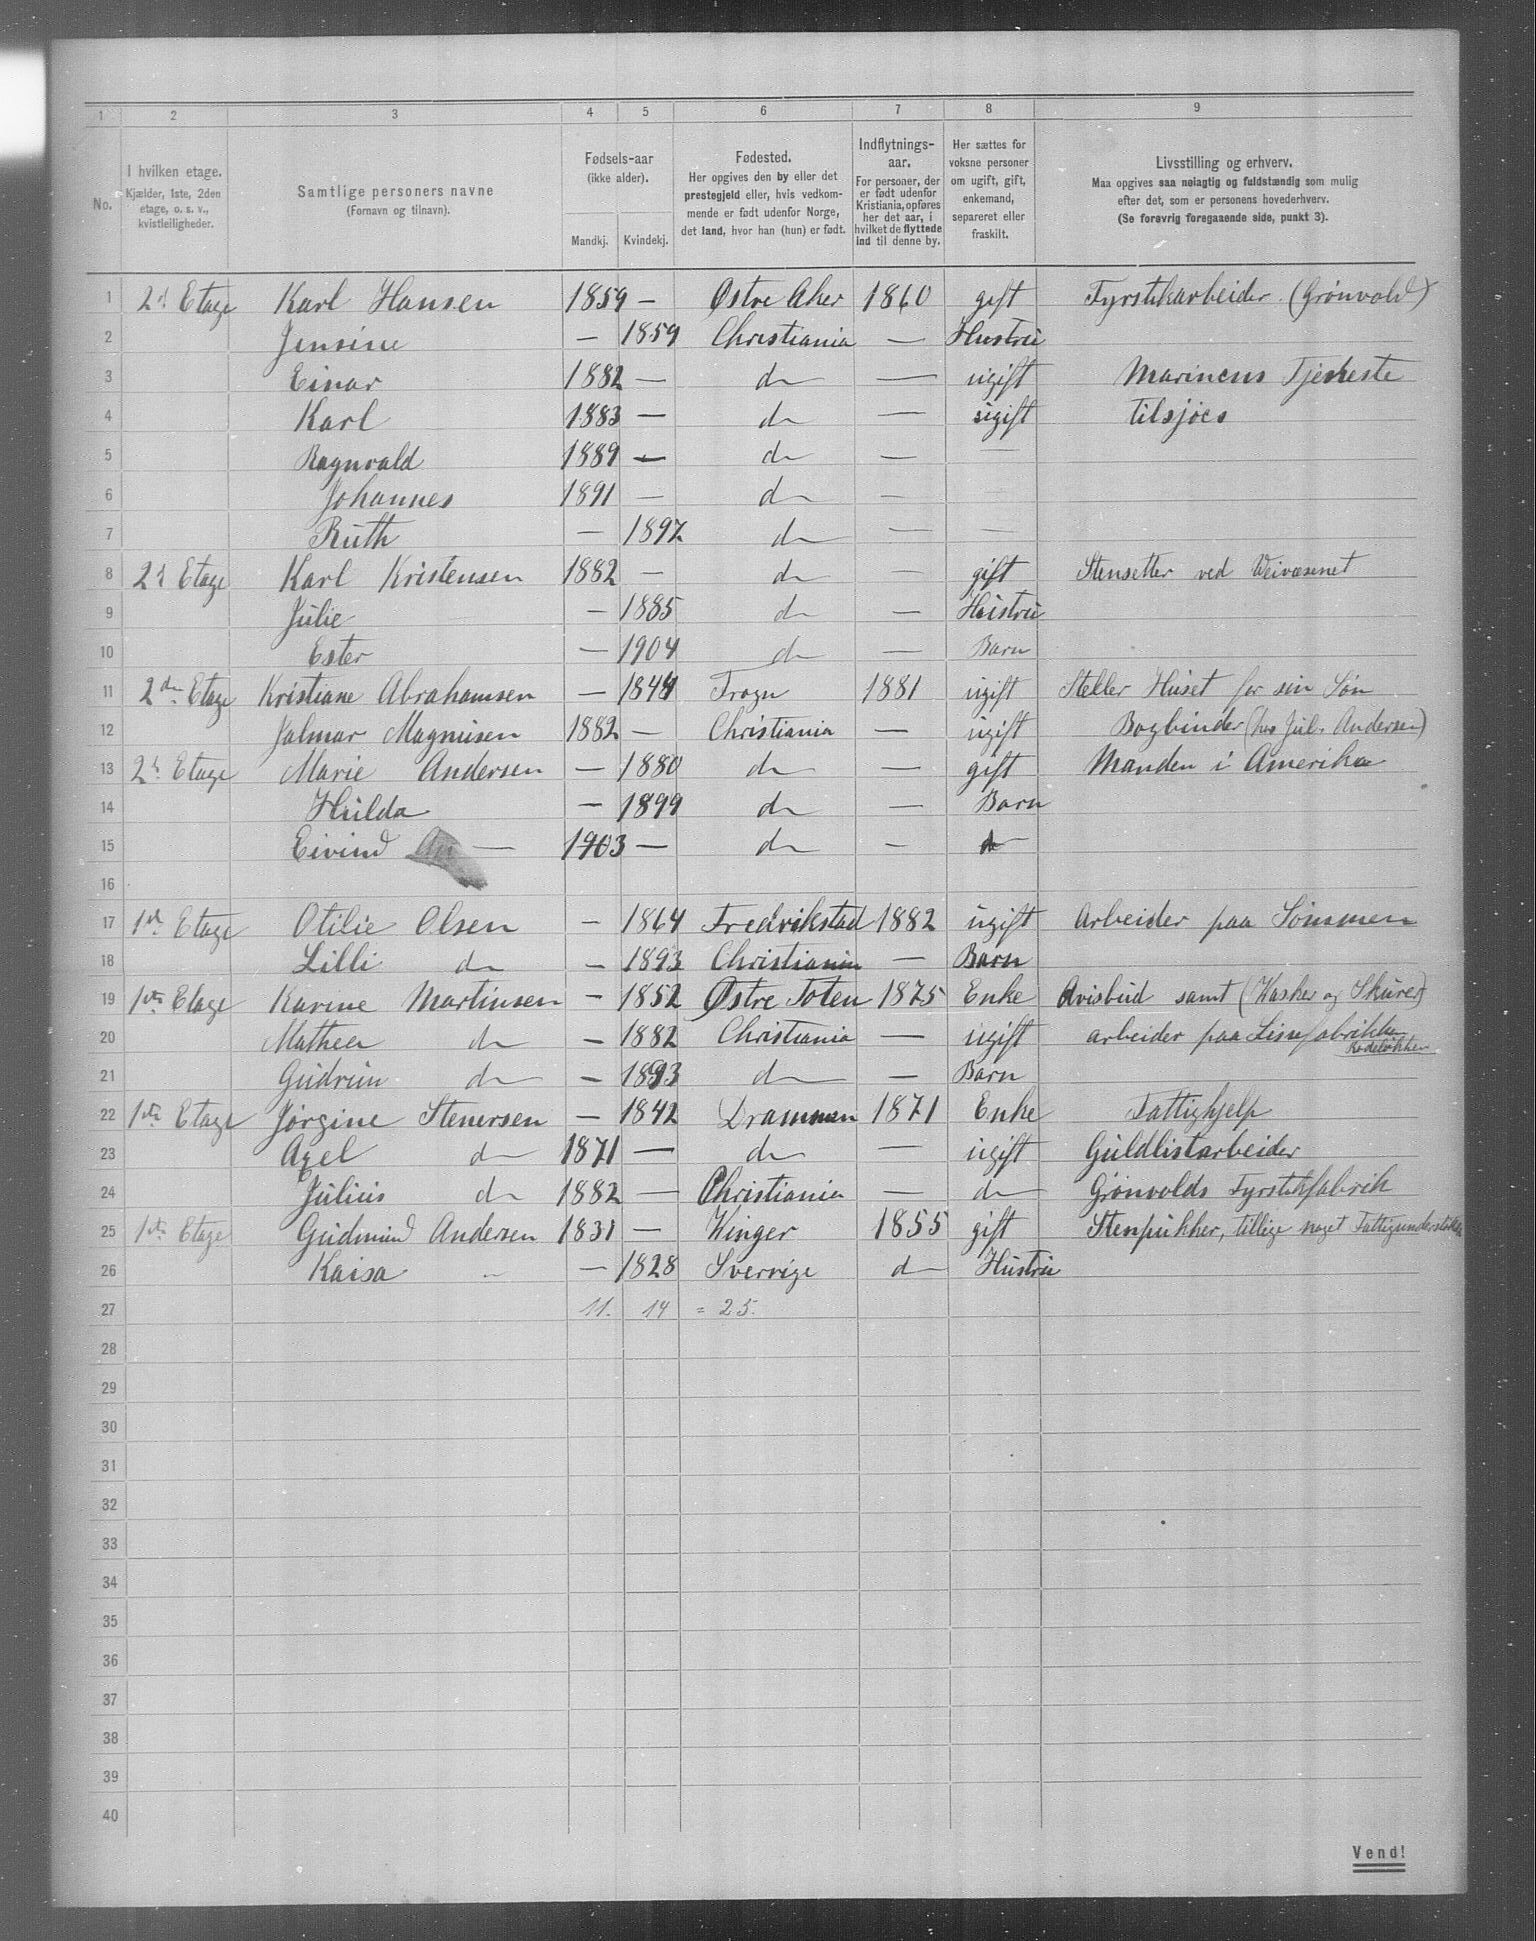 1 2 3 4 5 6 7 8 9
No.
I hvilken etage.
Kjælder, 1ste, 2den
etage, o. s. v.,
kvistleiligheder.
Samtlige personers navne
(Fornavn og tilnavn).
Fødsels-aar
(ikke alder).
Mandkj. Kvindekj.
Fødested.
Her opgives den by eller det
prestegjeld eller, hvis vedkom-
mende er født udenfor Norge,
det land, hvor han (hun) er født.
Indflytnings-
aar.
For personer, der
er født udenfor
Kristiania, opføres
her det aar, i
hvilket de flyttede
ind til denne by.
Her sættes for
voksne personer
om ugift, gift,
enkemand,
separeret eller
fraskilt.
Livsstilling og erhverv.
Maa opgives saa nøiagtig og fuldstændig som mulig
efter det, som er personens hovederhverv.
(Se forøvrig foregaaende side, punkt 3).
1 2d Etage Karl Hansen 1859 — Østre Aker 1860 gift Fyrstikarbeider (Grønvold)
2 Jensine — 1859 Christiania — Hustru
3 Einar 1882 — do — ugift Marinens Tjeneste
4 Karl 1883 — do — ugift tilsjøes
5 Ragnvald 1889 — do — —
6 Johannes 1891 — do — —
7 Ruth — 1897 do — —
8 2d Etage Karl Kristensen 1882 — do — gift Stensetter ved Veivæsenet
9 Julie — 1885 do — Hustru
10 Ester — 1904 do — Barn
11 2den Etage Kristiane Abrahamsen — Frogn 1881 ugift Steller Huset for sin Søn
12 Jalmar Magnusen 1882 — Christiania — ugift Bogbinder (hos Jul. Andersen)
13 2d Etage Marie Andersen — 1880 do — gift Manden i Amerika
14 Hulda — 1899 do — Barn
15 Eivind An — 1903 — do — do
16
17 1ste Etage Otilie Olsen — 1864 Fredrikstad 1882 ugift Arbeider paa Sømmen
18 Lilli do — 1893 Christiania — Barn
19 1ste Etage Karine Martinsen — 1852 Østre Toten 1875 Enke Avisbud samt (Vasker og Skurer)
20 Mathea do — 1882 Christiania — ugift arbeider paa Lissefabrikken
21 Gudrun do — 1893 do — Barn
22 1ste Etage Jørgine Stenersen — 1842 Drammen 1871 Enke Fattighjelp
23 Axel do 1871 — do — ugift Guldlistarbeider
24 Julius do 1882 — Christiania — do Grønvolds Fyrstikfabrik
25 1ste Etage Gudmund Andersen 1831 — Vinger 1855 gift Stenpukker, tillige noget Fattigunderstøttelse
26 Kaisa " — 1828 Sverrige do Hustru
27 11. 14 = 25.
28
29
30
31
32
33
34
35
36
37
38
39
40
Vend!